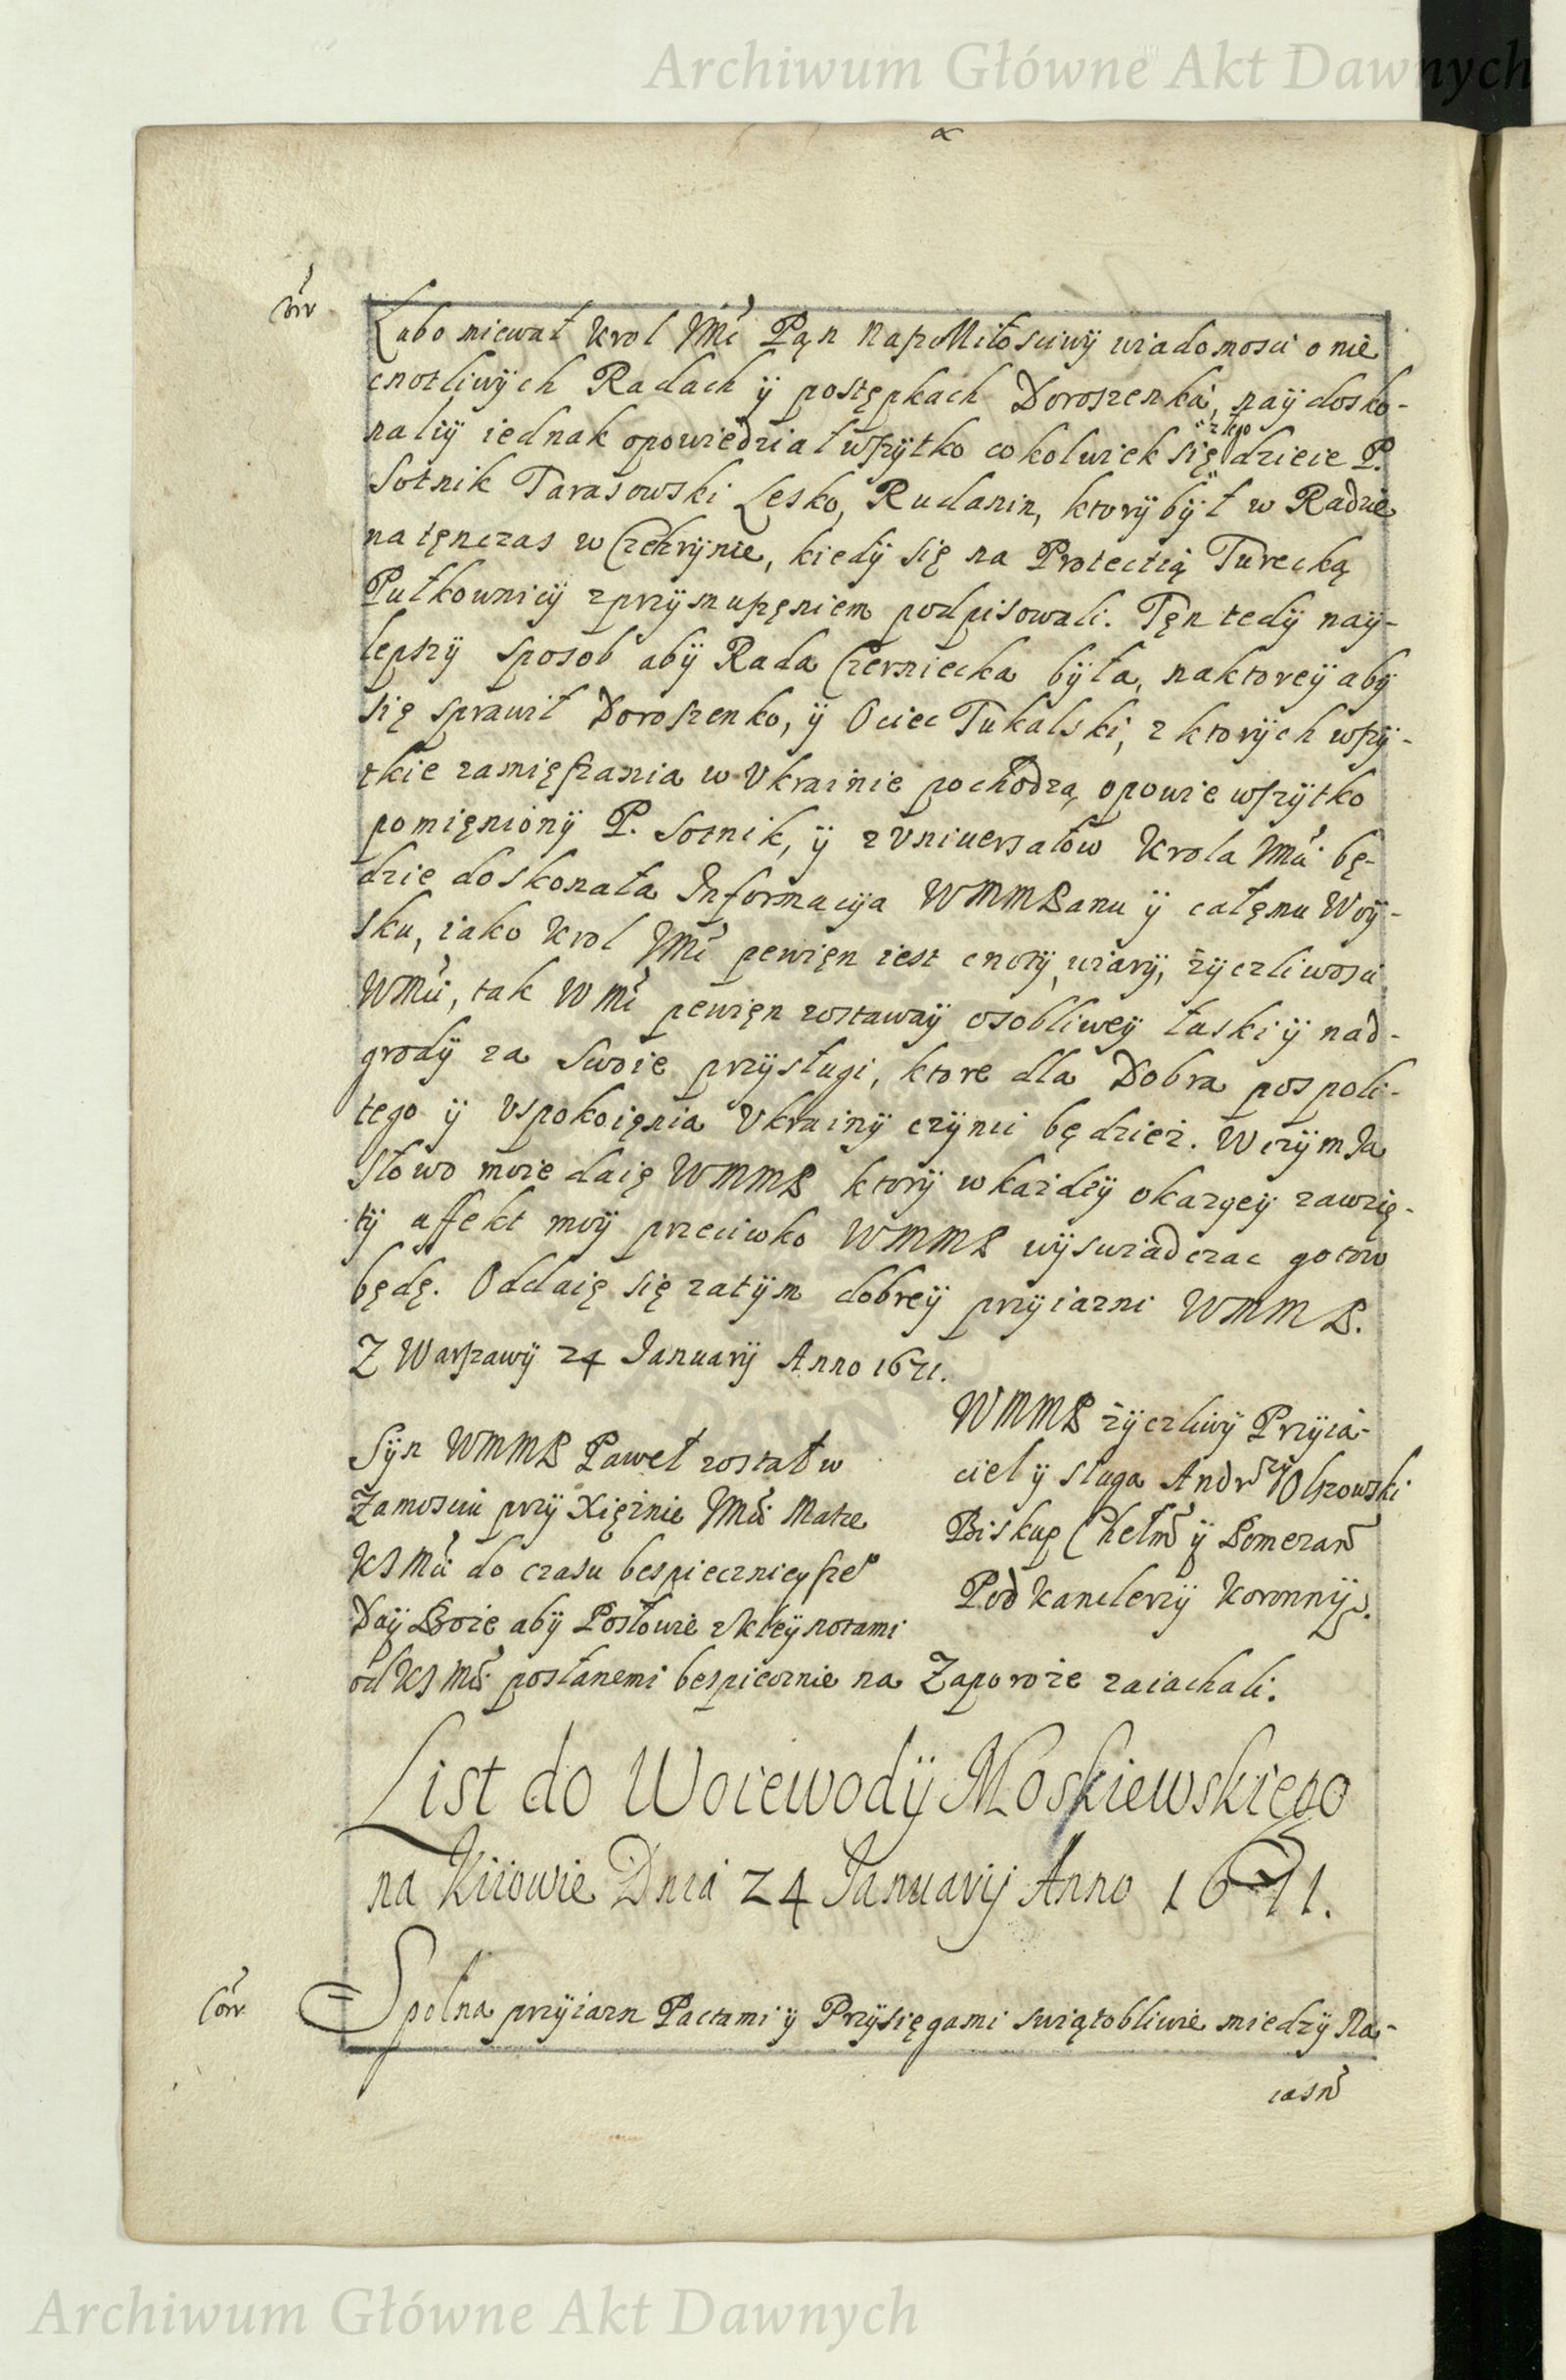 Archiwum Główne Akt Dawnych
Lubo miewał Krol JMć Pąn naszMiłosciwÿ wiadomosci o nie
cnotliwÿch Radach ÿ postępkach Doroszenka, naÿdosko-
nalÿ iednak opowiedział wszÿtko cokolwiek się złego dzieie P.
Sotnik Tarasowski Lesko, Rudanin, ktorÿ bÿł w Radzie
natęnczas w Czehrÿnie, kiedÿ się na Protectią Turecką
Pułkownicÿ zprzÿmuszęniem podpisowali. Tęn tedÿ naÿ-
lepszÿ sposob abÿ Rada Czerniecka bÿła, naktoreÿ abÿ
się sprawił Doroszenko, ÿ Ociec Tukalski, z ktorÿch wszÿ-
tkie zamięszania w Vkrainie pochodzą opowie wszÿtko
pomięnionÿ P. Sotnik, ÿ z Vniuersałow Krola JMći bę-
dzie doskonała Informacÿa WMMPanu ÿ całęmu Woÿ-
sku, iako Krol JMć pewięn iest cnotÿ, wiarÿ, żÿczliwosci
WMći, tak WMć pewięn zostawaÿ osobliweÿ łaski ÿ nad-
grodÿ za swoie przÿsługi, ktore dla Dobra pospoli-
tego ÿ Vspokoięnia Vkrainÿ czÿnić będziez. W czÿm Ja
słowo moie daię WMMP ktorÿ w kazdeÿ okazyeÿ zawzię-
tÿ affekt moÿ przeciwko WMMP wÿswiadczac gotow
będę. Oddaię się zatÿm dobreÿ przÿiazni WMMP.
Z Warszawÿ 24 Januarÿ Anno 1671.
WMMP żÿczliwÿ Przÿia-
ciel ÿ sługa Andrzÿ Olszowski
Biskup Chełm ÿ Pomezan
Podkanclerzÿ Koronnÿ.
Sÿn WMMP Paweł został w
Zamosciu przÿ Xiężnie JMći Matce
KJMći do czasu bespiecznieysze°
Daÿ Boże abÿ Posłowie z Kleÿnotami
od KJMći posłanemi bespiecznie na Zaporoże zaiachali.
List do Woiewodÿ Moskiewskiego
na Kiiowie Dnia 24 Januarÿ Anno 1671.
Spolna przÿiazn Pactami ÿ Przÿsięgami swiątobliwie miedzÿ Na-
iasn
Archiwum Główne Akt Dawnych